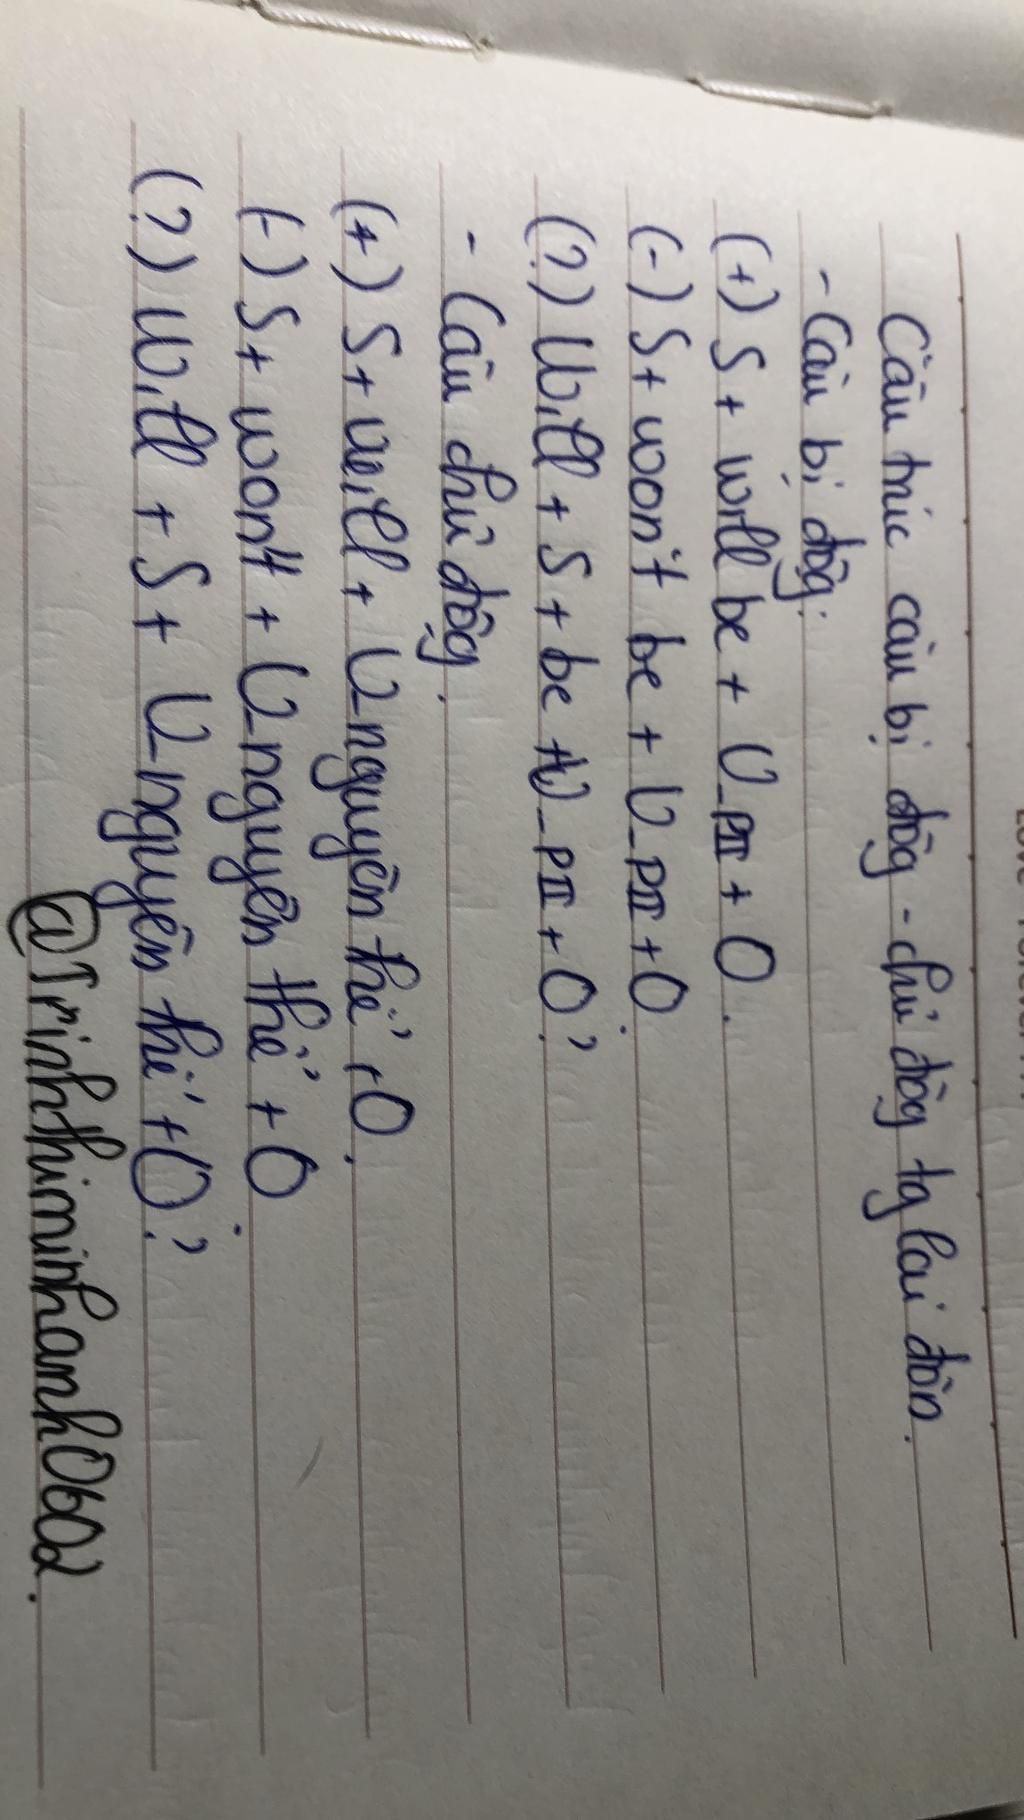 Cấu trúc câu bị độg - chủ độg tg lai đơn.
- Câu bị độg:
(+) S + will be + V_PII + O.
(-) S + won't be + V_PII + O.
(?) Will + S + be + V_PII + O?
- Câu chủ độg.
(+) S + will + V_nguyên thể + O.
(-) S + won't + V_nguyên thể + O.
(?) Will + S + V_nguyên thể + O?